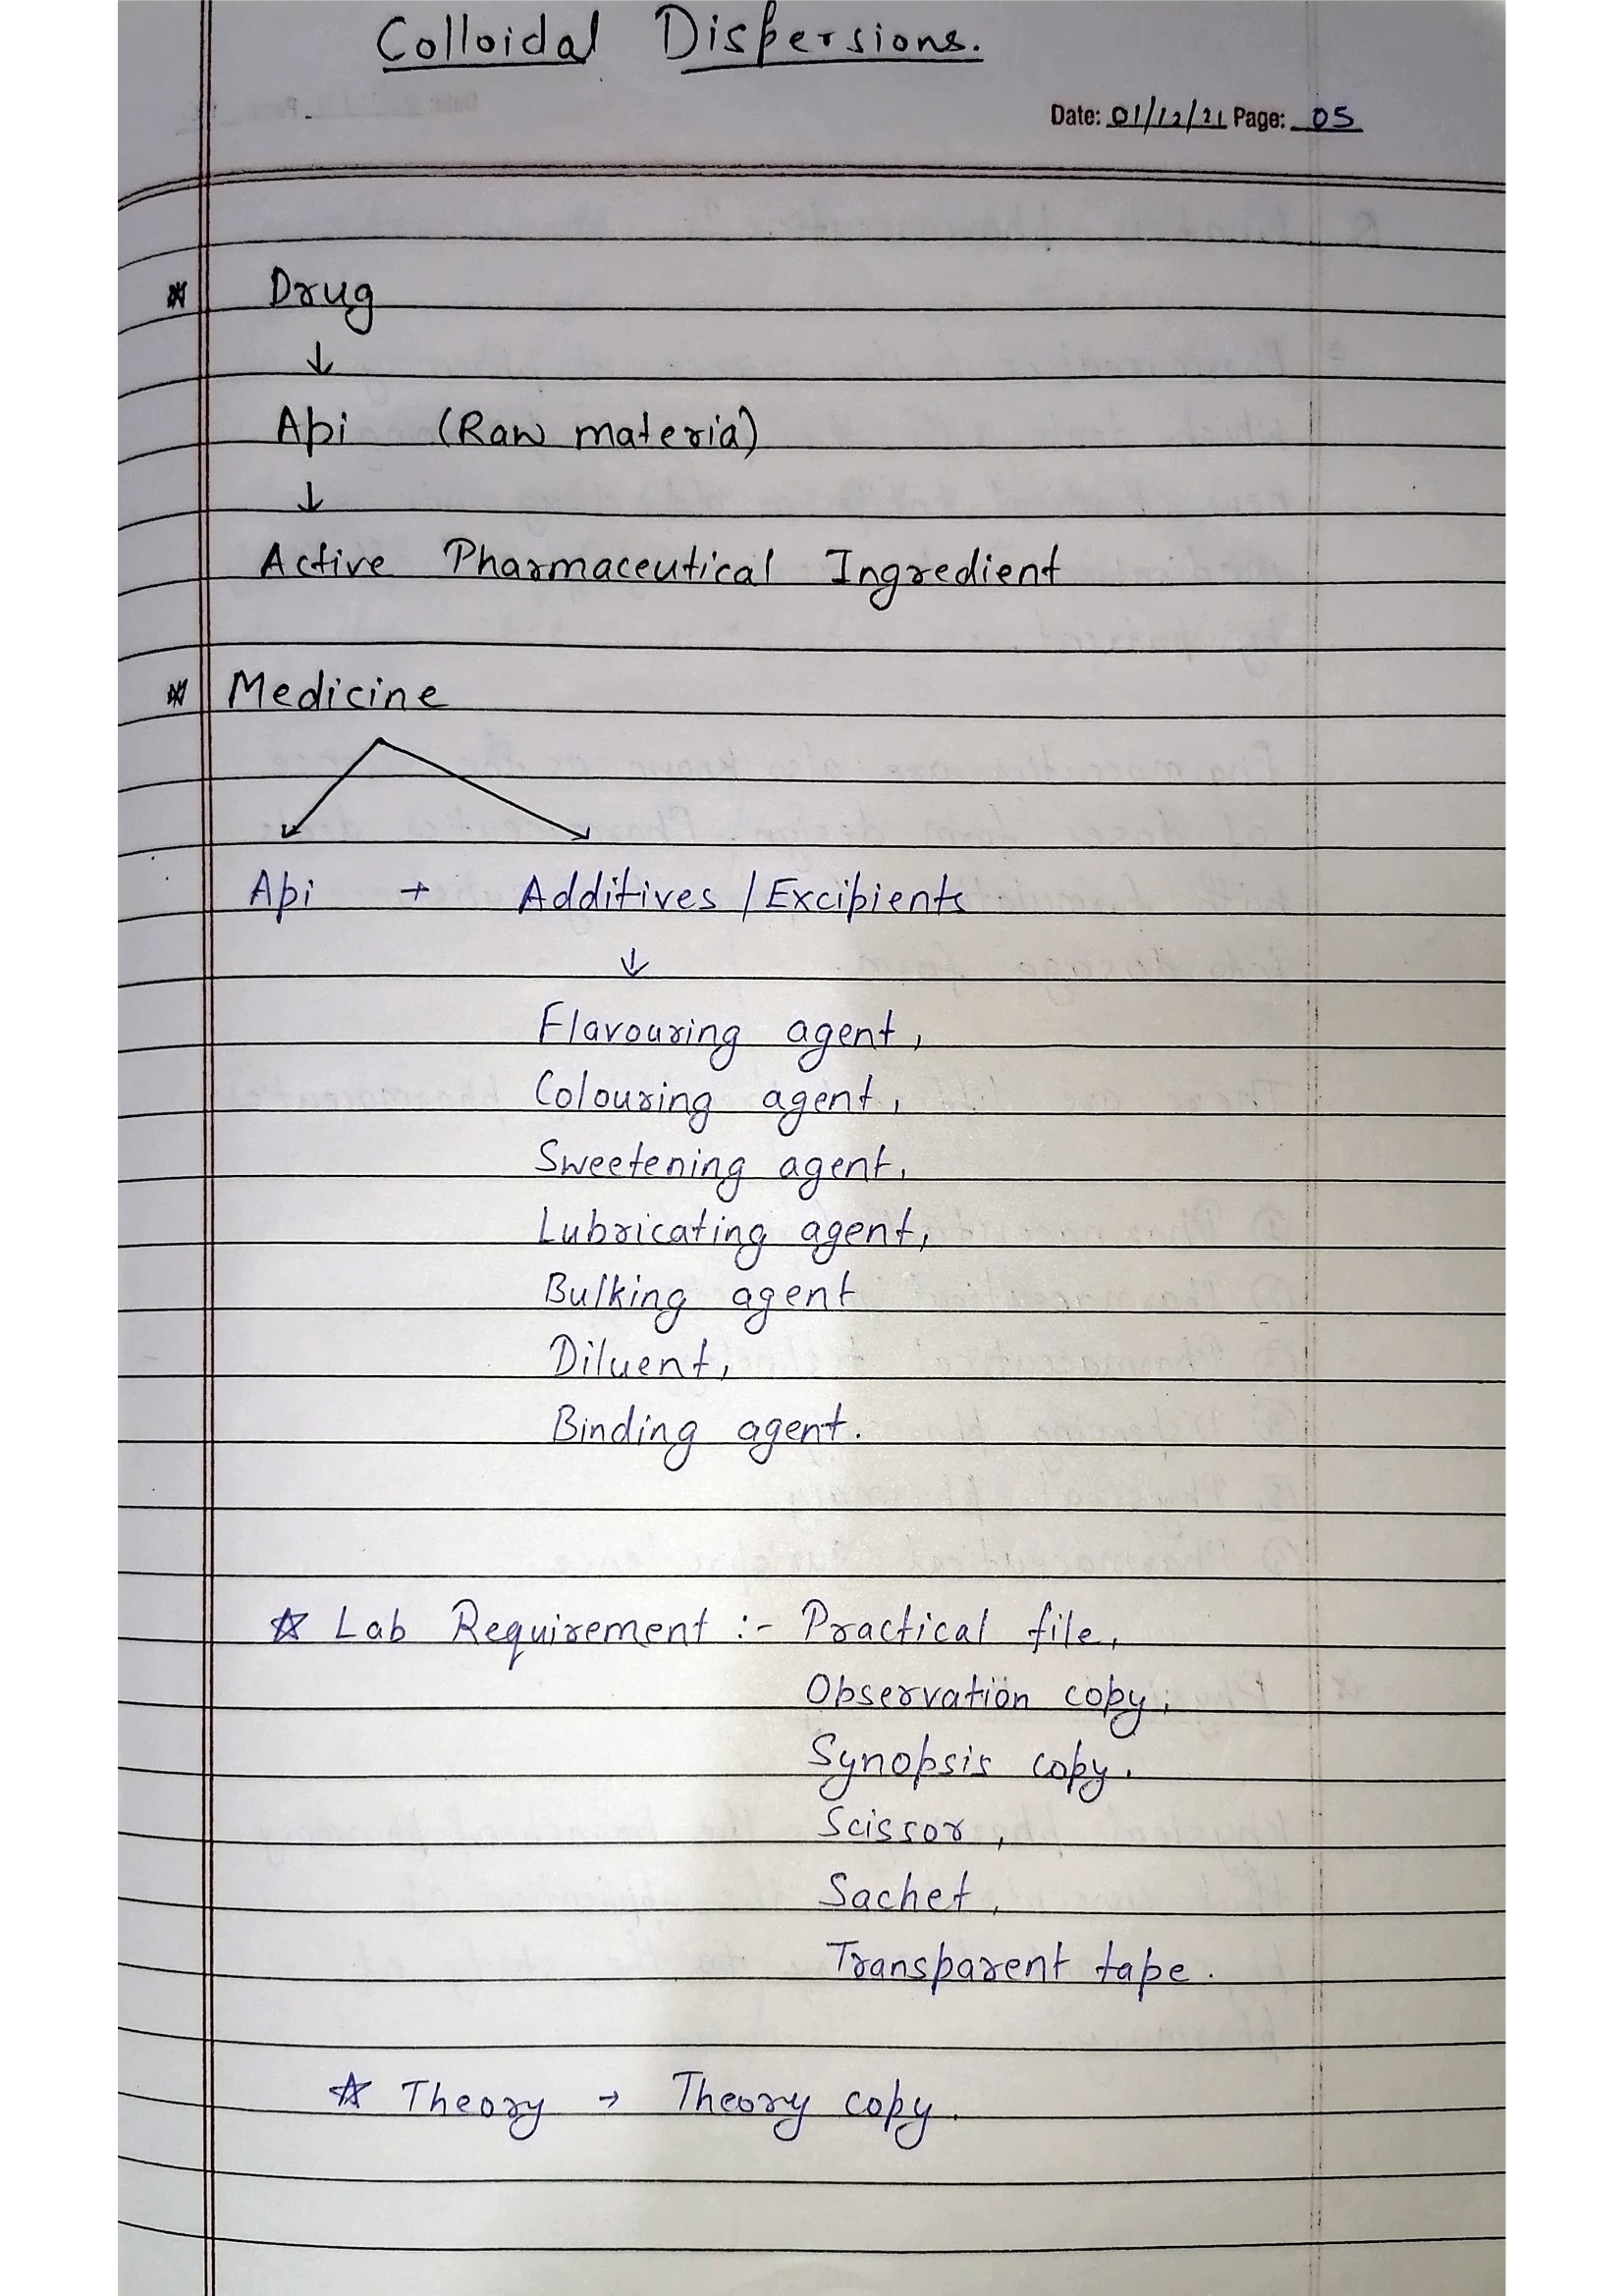 Colloidal Dispersions.
Date: 01/12/21 Page: 05
* Drug
↓
Api (Raw materia)
↓
Active Pharmaceutical Ingredient
* Medicine
Api + Additives / Excipients
↓
Flavouring agent,
Colouring agent,
Sweetening agent,
Lubricating agent,
Bulking agent
Diluent,
Binding agent.
☆ Lab Requirement :- Practical file,
Observation copy,
Synopsis copy.
Scissor,
Sachet,
Transparent tape.
☆ Theory → Theory copy.